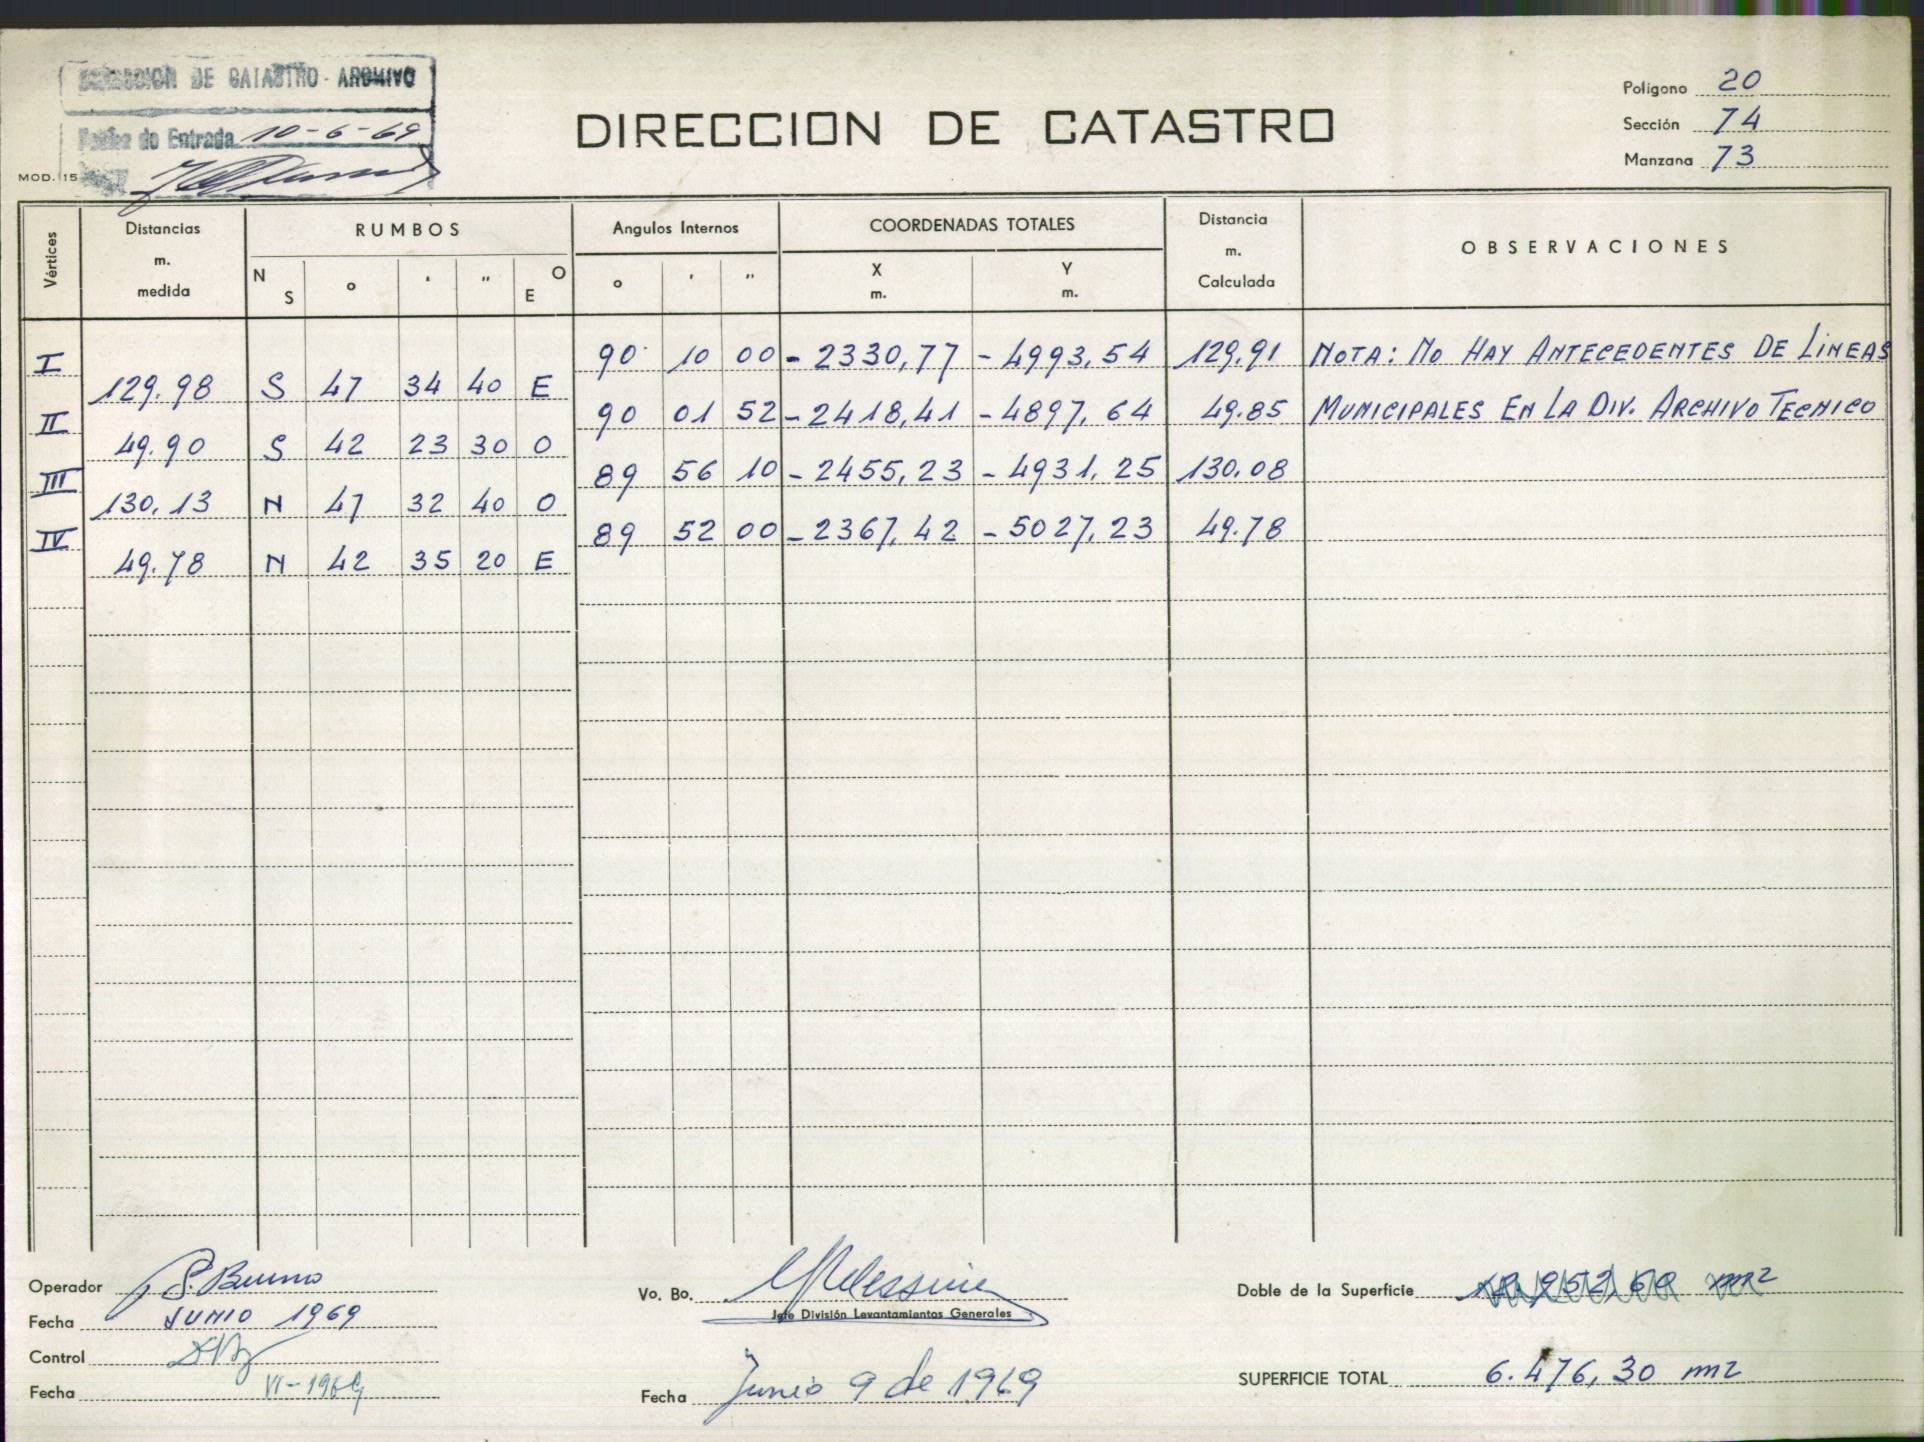 DIRECCION DE CATASTRO - ARCHIVO
de Entrada 10-6-69
MOD. 15
DIRECCION DE CATASTRO
Polígono 20
Sección 74
Manzana 73
Vértices
Distancias m. medida
RUMBOS
N S o ' " E O
Angulos Internos
o ' "
COORDENADAS TOTALES
X m. Y m.
Distancia m. Calculada
OBSERVACIONES
I 90 10 00 - 2330,77 - 4993,54 129.91 NOTA: NO HAY ANTECEDENTES DE LINEAS
129.98 S 47 34 40 E
II 90 01 52 - 2418,41 - 4897,64 49.85 MUNICIPALES EN LA DIV. ARCHIVO TECNICO
49.90 S 42 23 30 O
III 89 56 10 - 2455,23 - 4931,25 130.08
130,13 N 47 32 40 O
IV 89 52 00 - 2367,42 - 5027,23 49.78
49.78 N 42 35 20 E
Operador
Fecha JUNIO 1969
Control
Fecha VI-1969
Vo. Bo.
Jefe División Levantamientos Generales
Fecha Junio 9 de 1969
Doble de la Superficie m2
SUPERFICIE TOTAL 6.476,30 m2